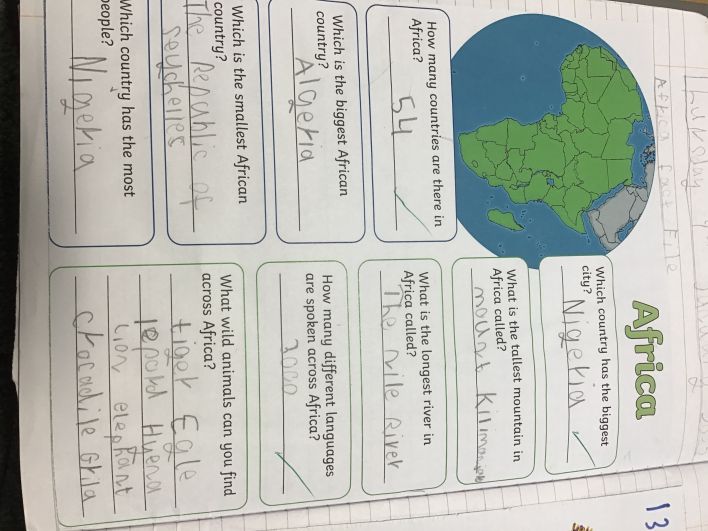 Africa fact File
13
Africa
How many countries are there in
Africa?
54
Which is the biggest African
country?
Algeria
Which is the smallest African
country?
The Republic of
seychelles
Which country has the most
people?
Nigeria
Which country has the biggest
city?
Nigeria
What is the tallest mountain in
Africa called?
What is the longest river in
Africa called?
The nile River
How many different languages
are spoken across Africa?
2000
What wild animals can you find
across Africa?
tiger Egle
lepard Hyena
lion elephant
crocadile Grila